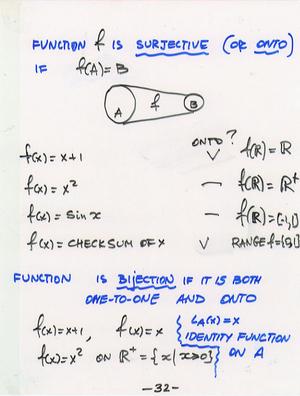 FUNCTION f IS SURJECTIVE (OR ONTO)
IF f(A) = B
A f B
ONTO?
f(x) = x+1 ✓ f(ℝ) = ℝ
f(x) = x² — f(ℝ) = ℝ⁺
f(x) = sin x — f(ℝ) = [-1,1]
f(x) = CHECKSUM OF x ✓ RANGE f =
FUNCTION IS BIJECTION IF IT IS BOTH
ONE-TO-ONE AND ONTO
f(x) = x+1, f(x) = x { ι_A(x) = x
IDENTITY FUNCTION
f(x) = x² ON ℝ⁺ = {x | x≥0} ON A
-32-